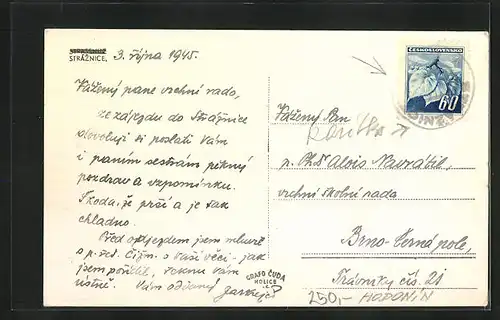 STRÁŽNICE,
3. října 1945.
Vážený pane vrchní rado,
ze zájezdu do Strážnice
dovoluji si poslati Vám
i paním sestrám pěkný
pozdrav a vzpomínku.
Škoda, že prší a je tak
chladno.
Před odjezdem jsem mluvil
s p. řed. Čižm. o Vaší věci - jak
jsem pořídil, řeknu Vám
ústně. Vám oddaný
GRAFO ČUDA
HOLICE
ČESKOSLOVENSKO
60
Vážený Pan
p. Ph.Dr Alois Navrátil,
vrchní školní rada
Brno-Černá pole,
Trávníky čís. 21
250,- HODONÍN